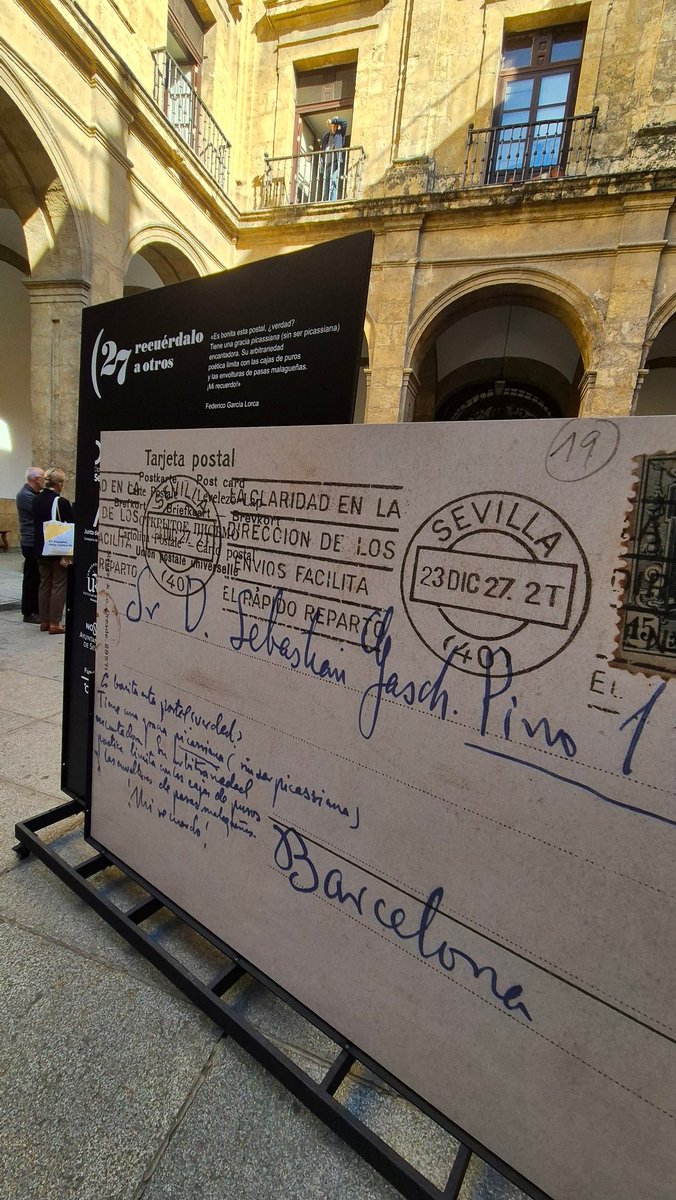 (27 recuérdalo
a otros
«Es bonita esta postal, ¿verdad?
Tiene una gracia picassiana (sin ser picassiana)
encantadora. Su arbitrariedad
poética limita con las cajas de puros
y las envolturas de pasas malagueñas.
¡Mi recuerdo!»
Federico García Lorca
19
Tarjeta postal
Postkarte Post card
Brefkort Briefkaart Brevkort
Union postale universelle
LA CLARIDAD EN LA
DIRECCION DE LOS
ENVIOS FACILITA
EL RÁPIDO REPARTO
D EN LA
DE LOS
FACILITA
REPARTO
SEVILLA
(40)
SEVILLA
23 DIC 27. 2T
(40)
EL
Sr D. Sebastian Gasch. Pino 1
Es bonita esta postal ¿verdad?
Tiene una gracia picassiana (sin ser picassiana)
encantadora. Su arbitrariedad
poetica limita con las cajas de puros
y las envolturas de pasas malagueñas.
¡Mi recuerdo!
Barcelona